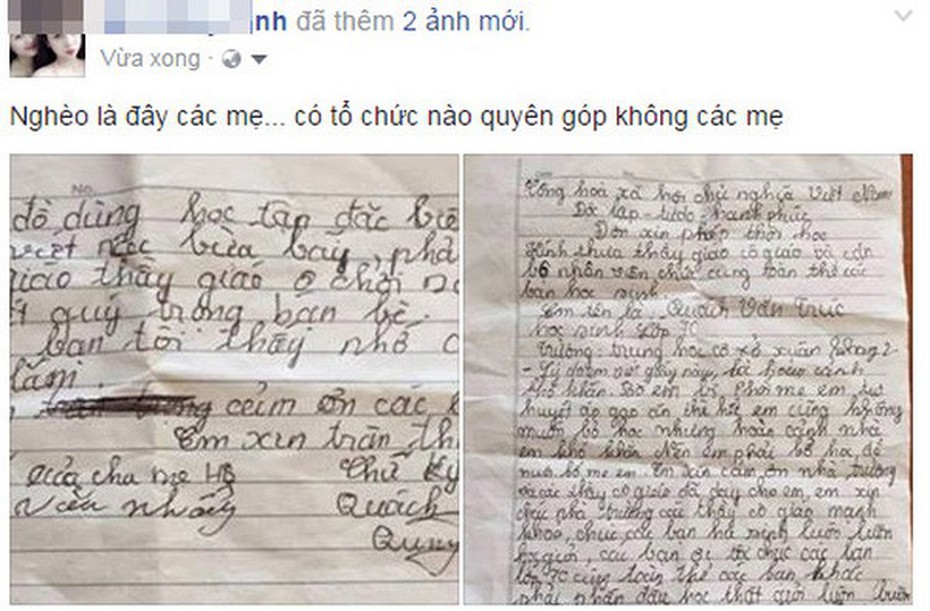 nh đã thêm 2 ảnh mới.
Vừa xong
Nghèo là đây các mẹ... có tổ chức nào quyên góp không các mẹ
No.
đồ dùng học tập đặc biệ
vứt bừa bãy, phả
giáo thầy giáo ở chời
quý trong bạn bè.
bạn tôi thấy nhớ c
lắm.
cảm ơn các
Em xin trân th
của cha mẹ HS chữ ký
Văn nhấy Quách
Quang
Cộng hoà xã hội chủ nghĩa Việt Nam
Độc lập - tự do - hạnh phúc
Đơn xin phép thôi học
Kính thưa thầy giáo cô giáo và cán
bộ nhân viên chức cùng toàn thể các
bạn học sinh.
Em tên là: Quách Văn Trực
học sinh lớp 7C
Trường: trung học cơ sở xuân 2
- Lý do em viết giấy này, là hoàn cảnh
khó khăn. Bố em bị Phổi mẹ em tụt
huyết áp gạo ăn thì hết em cũng không
muốn bỏ học nhưng hoàn cảnh nhà
em khó khăn Nên em phải bỏ học để
nuôi bố mẹ em. Em xin cảm ơn nhà trường
và các thầy cô giáo đã dạy cho em, em xin
chúc nhà trường các thầy cô giáo mạnh
khoẻ, chúc các bạn hs mình luôn luôn
học giỏi, các bạn ơi tôi chúc các bạn
lớp 7C cùng toàn thể các bạn khác
phải phấn đấu học thật giỏi luôn luôn